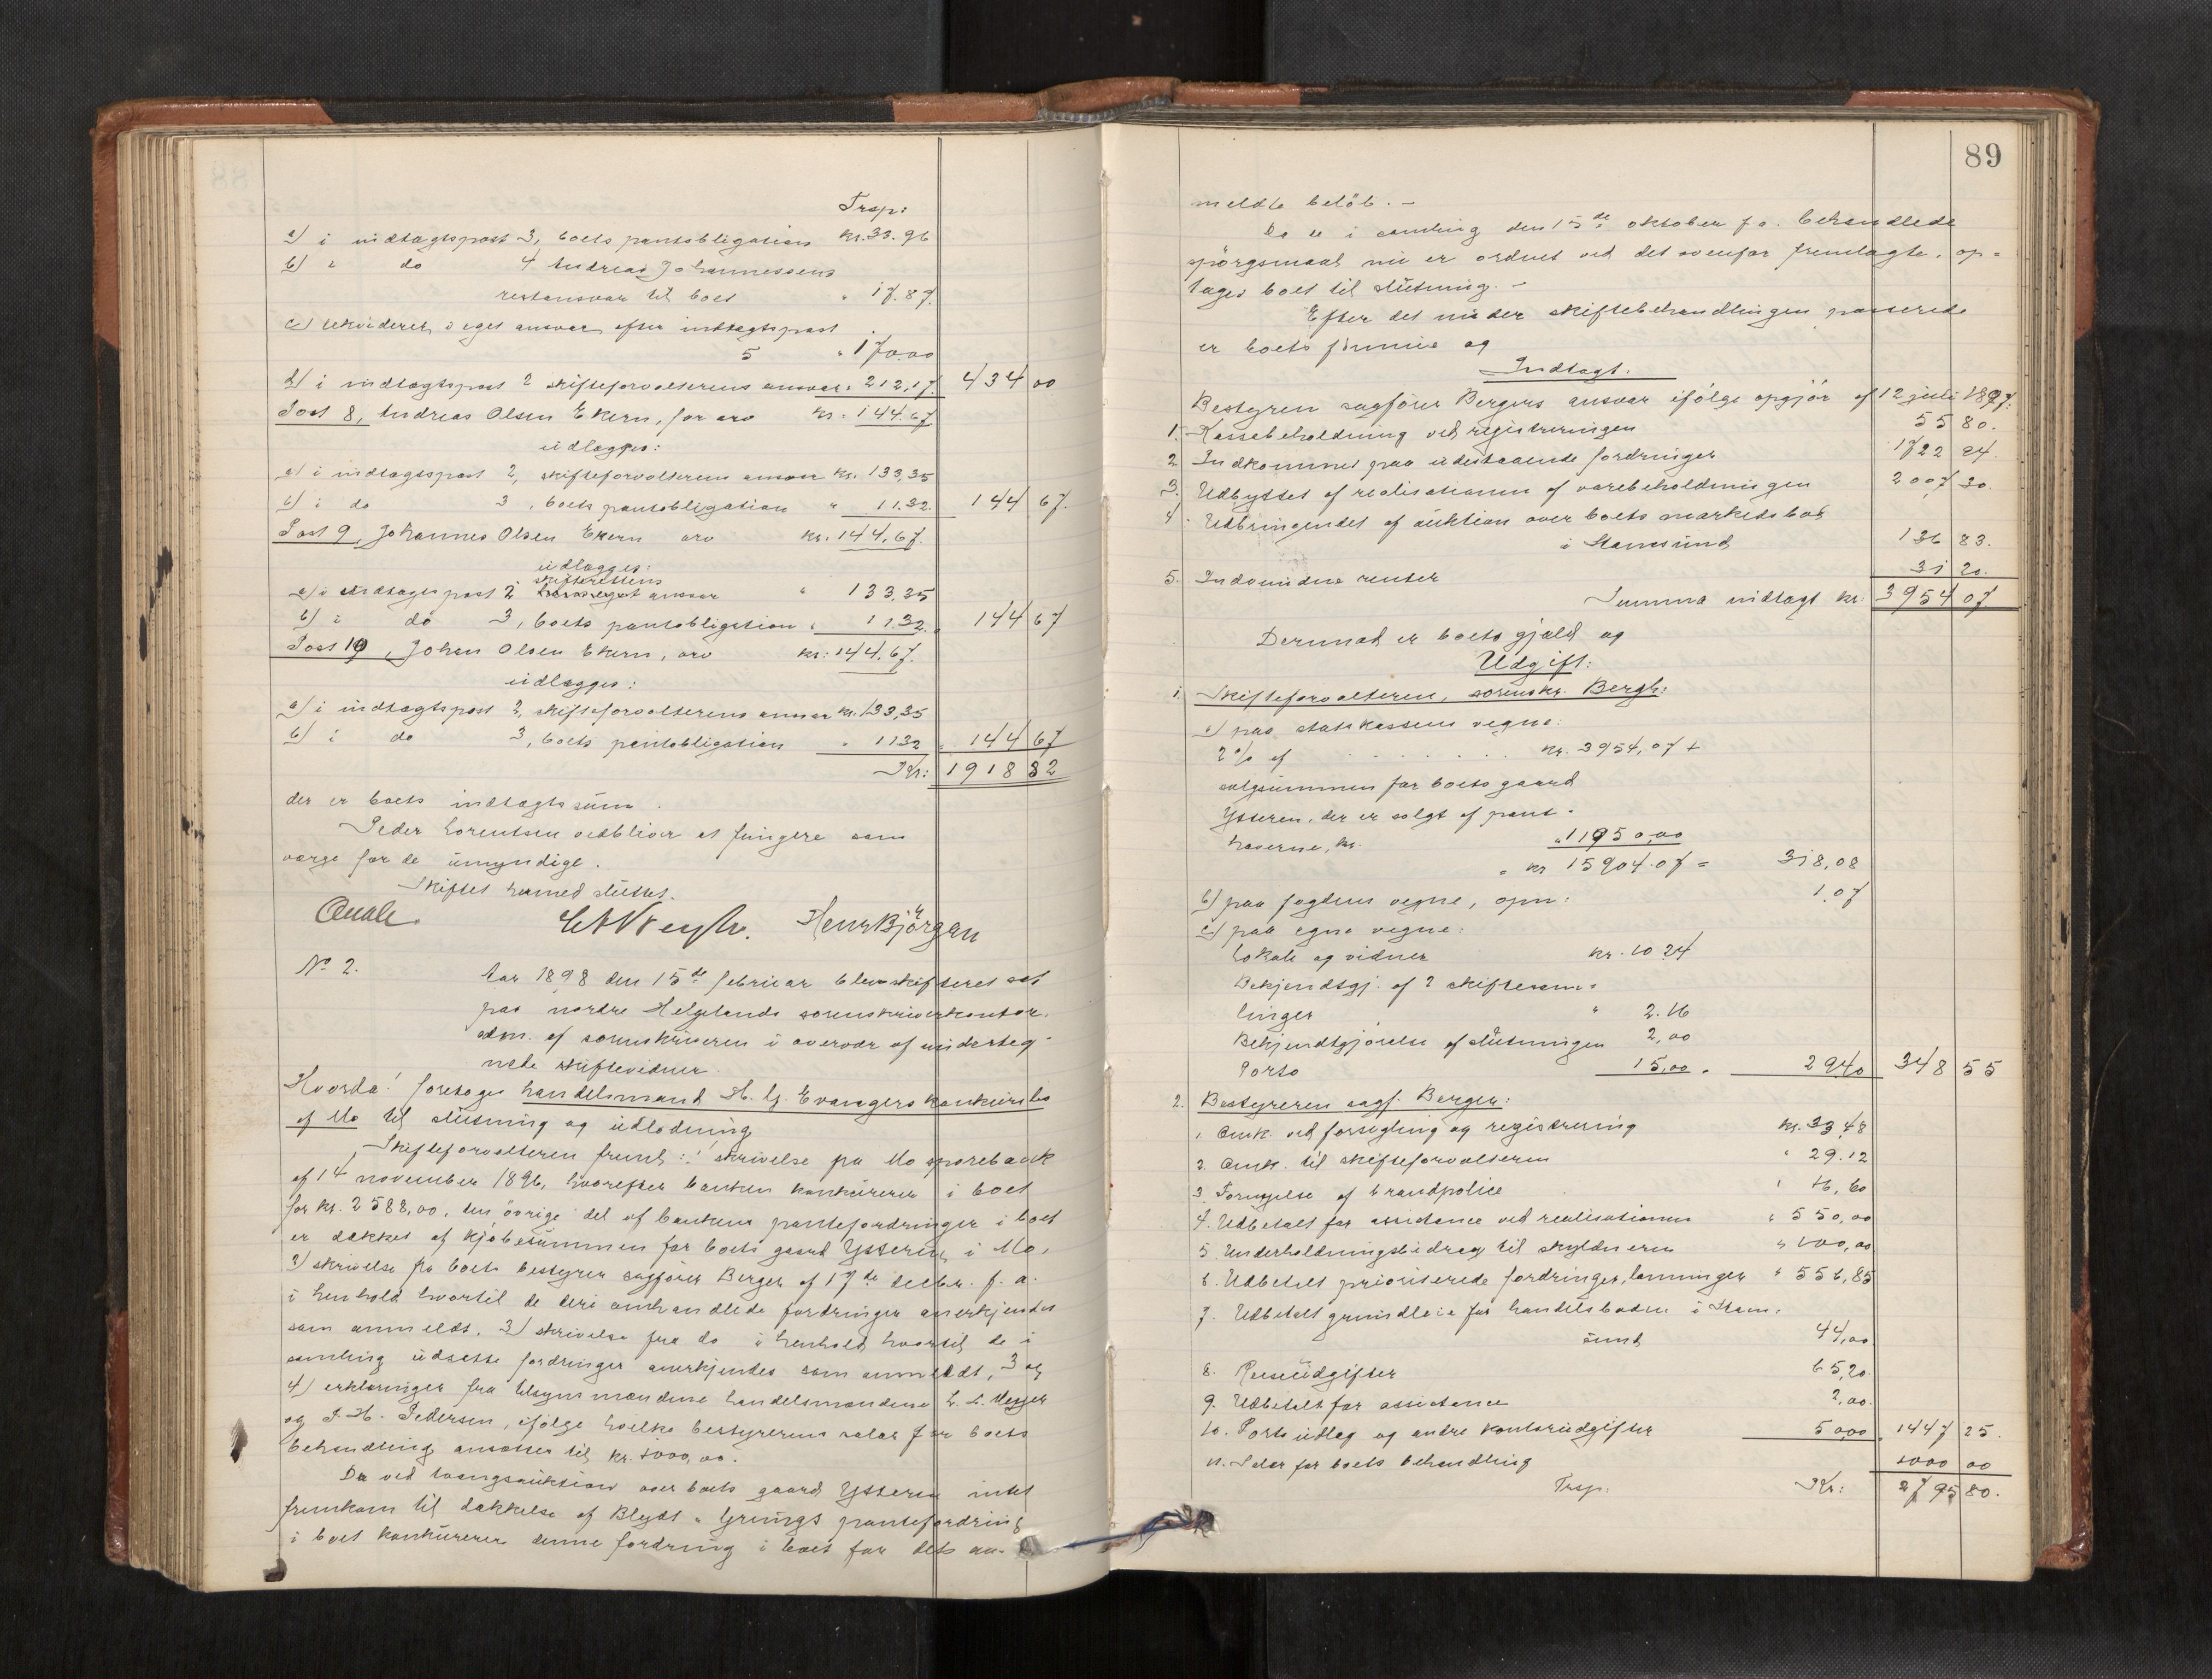 Trsp:
a) i indtægtspost 3, boets pantobligation kr. 33.96
b) i do 4 Andreas Johannessens
restansvar til boet " 17.87.
c) eget ansvar efter indtægtspost
5 " 170.00
d) i indtægtspost 2 skifteforvalterens ansvar " 212,17. 434 00
Post 8, Andreas Olsen Ekern, for arv kr: 144.67
udlægges:
a) i indtægtspost 2, skifteforvalterens ansvar kr. 133,35
b) i do 3, boets pantobligation " 11.32. 144 67.
Post 9, Johannes Olsen Ekern arv kr. 144,67.
udlægges:
skifterettens
a) i indtægtspost 2 ansvar " 133,35
b) i do 3, boets pantobligation " 11.32. 144 67
Post 10, Johan Olsen Ekern, arv kr: 144,67.
udlægges:
a) i indtægtspost 2, skifteforvalterens ansvar kr. 133,35
b) i do 3, boets pantobligation " 11 32 144 67
Kr: 1918 32
der er boets indtægtssum.
Peder Lorentsen vedbliver at fungere som
værge for de umyndige.
Skiftet hermed sluttet.
Henr Bjørgan
No 2. Aar 1898 den 15de februar blev skifteret sat
paa nordre Helgelands sorenskriverkontor.
adm. af sorenskriveren i overvær af underteg-
nede skiftevidner.
Hvorda! foretoges handelsmand H. G. Evangers konkursbo
af Mo til slutning og udlodning
Skifteforvalteren freml: 1 skrivelse fra Mo sparebank
af 14 november 1896, hvorefter banken konkurerer i boet
for kr. 2588,00, den øvrige del af bankens pantefordringer i boet
er dækket af kjøbesummen for boets gaard Ytteren i Mo,
2) skrivelse fra boets bestyrer sagfører Berger af 17de decbr. f. a.
i henhold hvortil de deri omhandlede fordringer anerkjendes
som anmeldt. 3) skrivelse fra do i henhold hvortil de i
samling udsatte fordringer anerkjendes som anmeldt, 3 og
4) erklæringer fra tilsynsmændene handelsmændene L. A. Meyer
og I. H. Pedersen, ifølge hvilke bestyrerens salær for boets
behandling ansættes til kr. 1000,00.
Da ved tvangsauktion over boets gaard Ytteren intet
fremkom til dækkelse af Blydt & Grungs pantefordring
i boet konkurerer denne fordring i boet for dets an-
89
meldte beløb. -
Da de i samling den 15de oktober f. a. behandlede
spørgsmaal nu er ordnet ved det ovenfor fremlagte, op-
tages boet til slutning. -
Efter det under skiftebehandlingen passerede
er boets formue og
Indtægt.
Bestyreren sagfører Bergers ansvar ifølge opgjør af 12 juli 1897:
1. Kassebeholdning ved registreringen 55 80.
2 Indkommet paa udestaaende fordringer 1722 94.
3. Udbyttet af realisationen af varebeholdningen 2007 30.
4. Udbringendet af auktion over boets markedsbod
i Stamsund 136 83.
5. Indvundne renter 31 20.
Summa indtægt kr: 3954 07
Derimod er boets gjæld og
Udgift:
1. Skifteforvalteren, sorenskr. Bergh:
a) paa statskassens vegne:
2% af kr. 3954,07 +
salgsummen for boets gaard
Ytteren, der er solgt af pant-
haverne, kr. " 11950,00
= kr 15904.07 = 318,08
b) paa fogdens vegne, opn: 1,07
c) paa egne vegne:
Lokale og vidner kr. 10 24
Bekjendtgj. af 2 skiftesam-
linger " 2.16
Bekjendtgjørelse af slutningen 2,00
Porto 15,00 29 40 348 55
2. Bestyreren sagf. Berger:
1. Omk. ved forsegling og registrering kr. 33,48
2. Omk. til skifteforvalteren " 29.12
3. Fornyelse af brandpolice " 16,60
4. Udbetalt for assistance ved realisationen " 550,00
5. Underholdningsbidrag til skyldneren " 100,00
6. Udbetalt prioriterede fordringer, lønninger " 556,85
7. Udbetalt grundleie for handelsboden i Stam-
sund 44,00
8. Reiseudgifter 65,20
9. Udbetalt for assistance 2,00.
10. Porto udlæg og andre kontorudgifter 50,00 1447 25.
11. Salær for boets behandling 1000 00
Trsp: Kr: 2795 80.